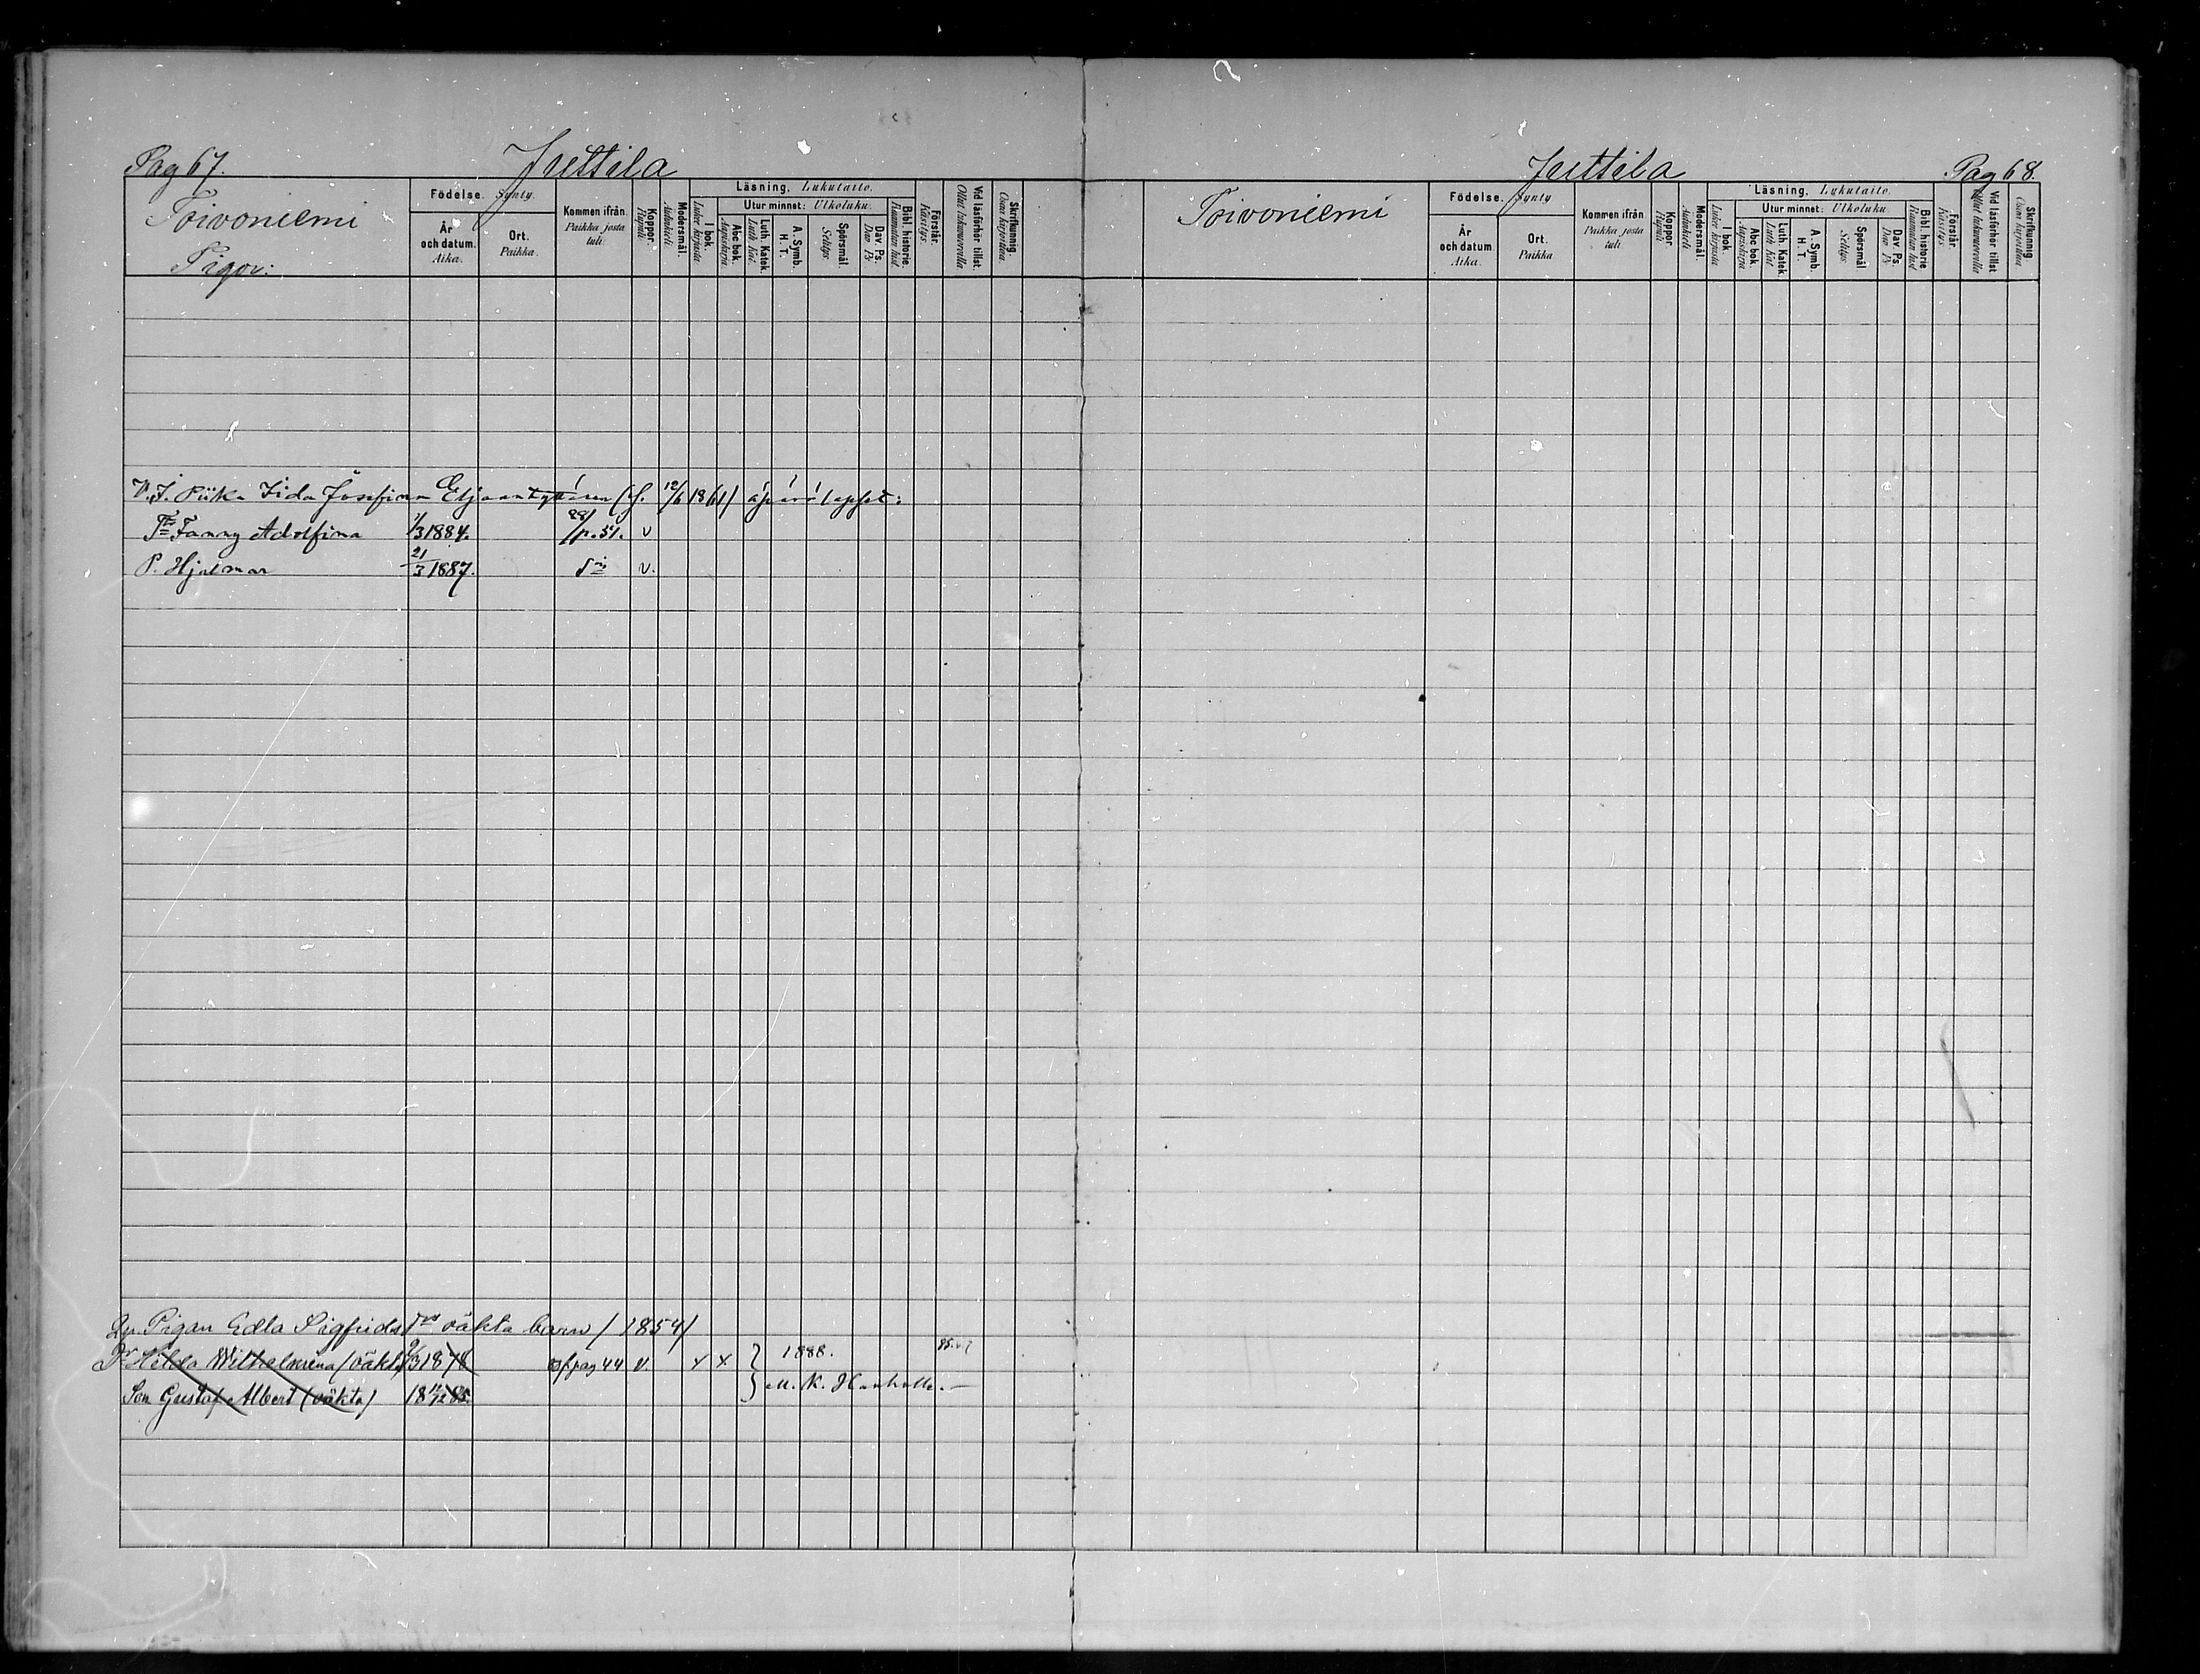 Pag 67.
Juttila
Toivoniemi
Pigor:
Födelse. Synty.
År och datum. Aika.
Ort. Paikka.
Kommen ifrån. Paikka josta tuli.
Koppor. Rupuli
Modersmål. Äidinkieli
Läsning. Lukutaito.
I bok. Lukee kirjasta
Utur minnet: Ulkoluku.
Abc bok. Aapiskirja
Luth. Katek. Luth. Kat.
A. Symb. H. T.
Spörsmål. Selitys.
Dav. Ps. Dav. Ps
Bibl. historie. Raamatun hist.
Förstår. Käsitys.
Vid läsförhör tillst. Ollut lukuvuorolla
Skrifkunnig. Osaa kirjoittaa.
V. I. Piika Iida Josefina (f. 12/6 1861) äpärä lapset:
Tr Fanny Adolfina 1/3 1884. p. 51. v
P. Hjalmar 21/3 1887. v.
Pigan Edla Sigfrids drs oäkta barn / 1854/
Dr Hilda Wilhelmina (oäkta) 3 1878 pag 44 v. x x 1888.
Son Gustaf Albert (oäkta) 18 12/12 85. M. K.
Juttila
Pag 68.
Toivoniemi
Födelse. Synty
År och datum. Aika.
Ort. Paikka
Kommen ifrån Paikka josta tuli.
Koppor Rupuli
Modersmål. Äidinkieli
Läsning. Lukutaito.
I bok. Lukee kirjasta
Utur minnet: Ulkoluku
Abc bok. Aapiskirja
Luth. Katek. Luth Kat.
A. Symb. H. T.
Spörsmål Selitys.
Dav Ps. Dav Ps
Bibl. historie Raamatun hist
Förstår. Käsitys.
Vid läsförhör tillst Ollut lukuvuorolla
Skrifkunnig Osaa kirjoittaa